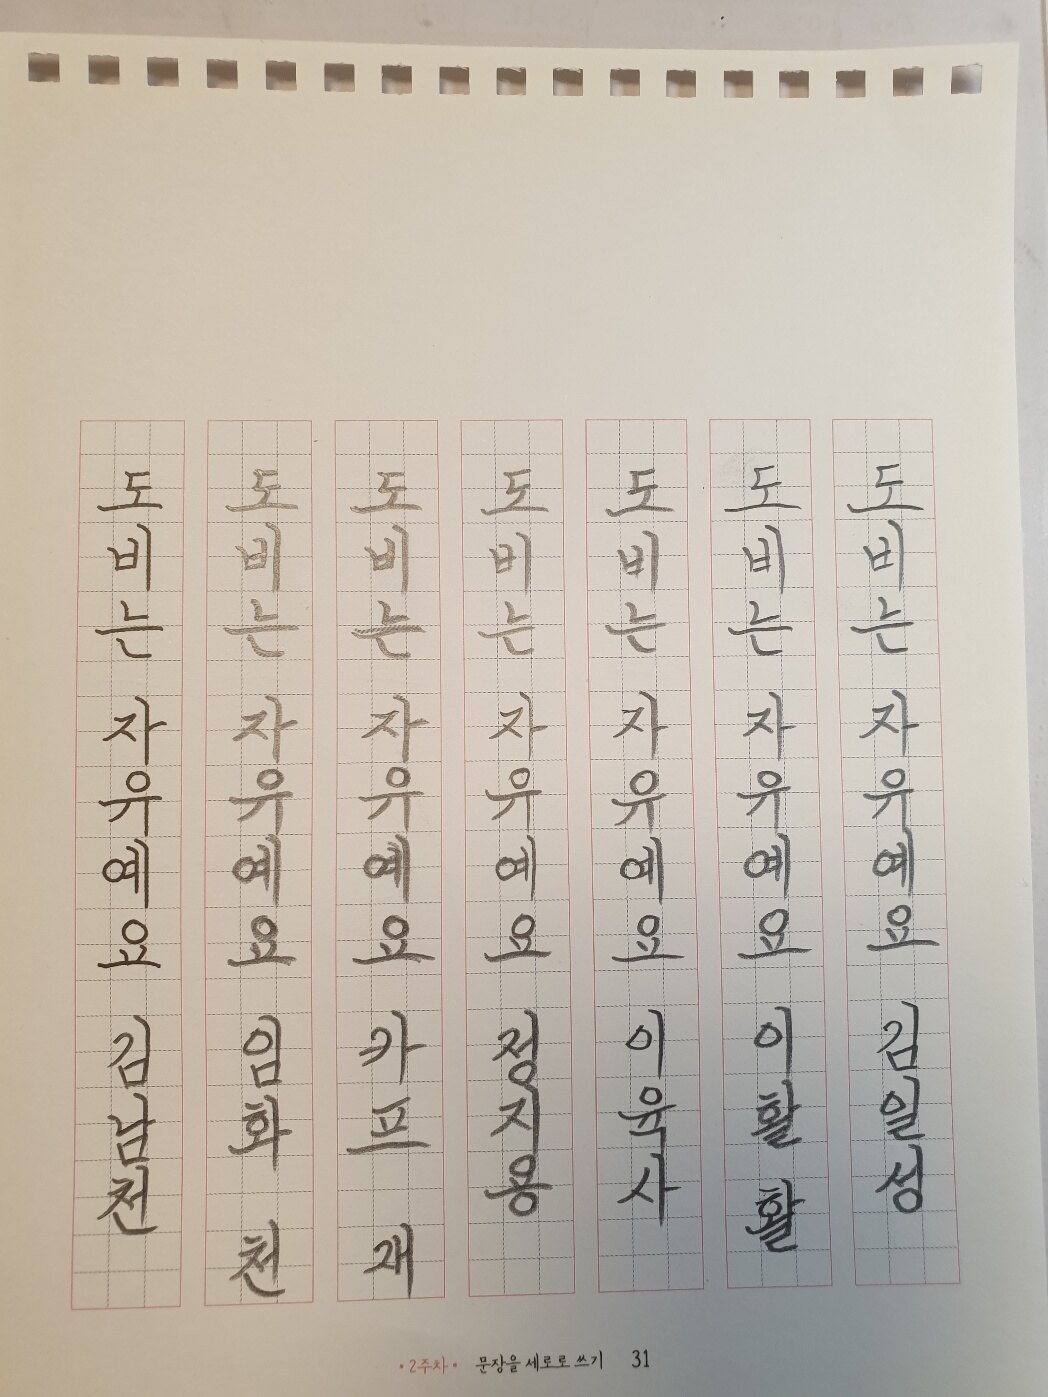 도비는 자유예요 김남천
도비는 자유예요 임화 천
도비는 자유예요 카프 재
도비는 자유예요 정지용
도비는 자유예요 이육사
도비는 자유예요 이활 활
도비는 자유예요 김일성
•2주차• 문장을 세로로 쓰기 31